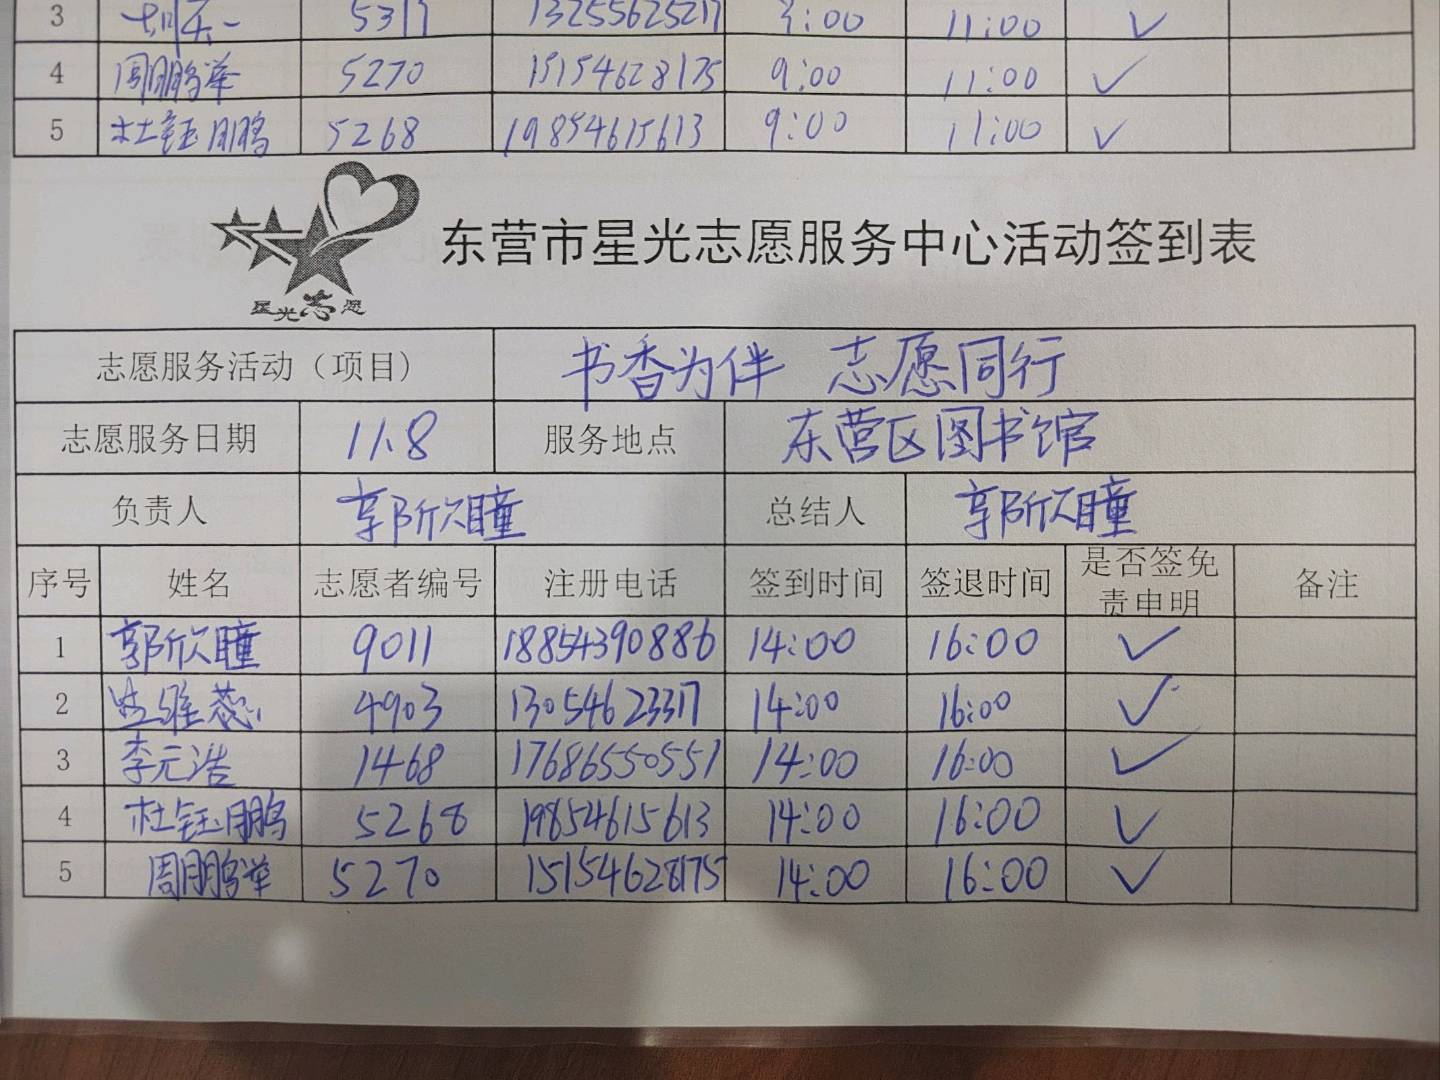 3 5317 13255625217 11:00 ✓
4 周鹏举 5270 15154628175 9:00 11:00 ✓
5 杜钰鹏 5268 19854615613 9:00 11:00 ✓
星光志愿
东营市星光志愿服务中心活动签到表
志愿服务活动（项目） 书香为伴 志愿同行
志愿服务日期 11.8 服务地点 东营区图书馆
负责人 郭欣瞳 总结人 郭欣瞳
序号 姓名 志愿者编号 注册电话 签到时间 签退时间 是否签免责申明 备注
1 郭欣瞳 9011 18854390886 14:00 16:00 ✓
2 维蕊 4903 13054623317 14:00 16:00 ✓
3 李元浩 1468 17686550551 14:00 16:00 ✓
4 杜钰鹏 5268 19854615613 14:00 16:00 ✓
5 周鹏举 5270 15154628175 14:00 16:00 ✓